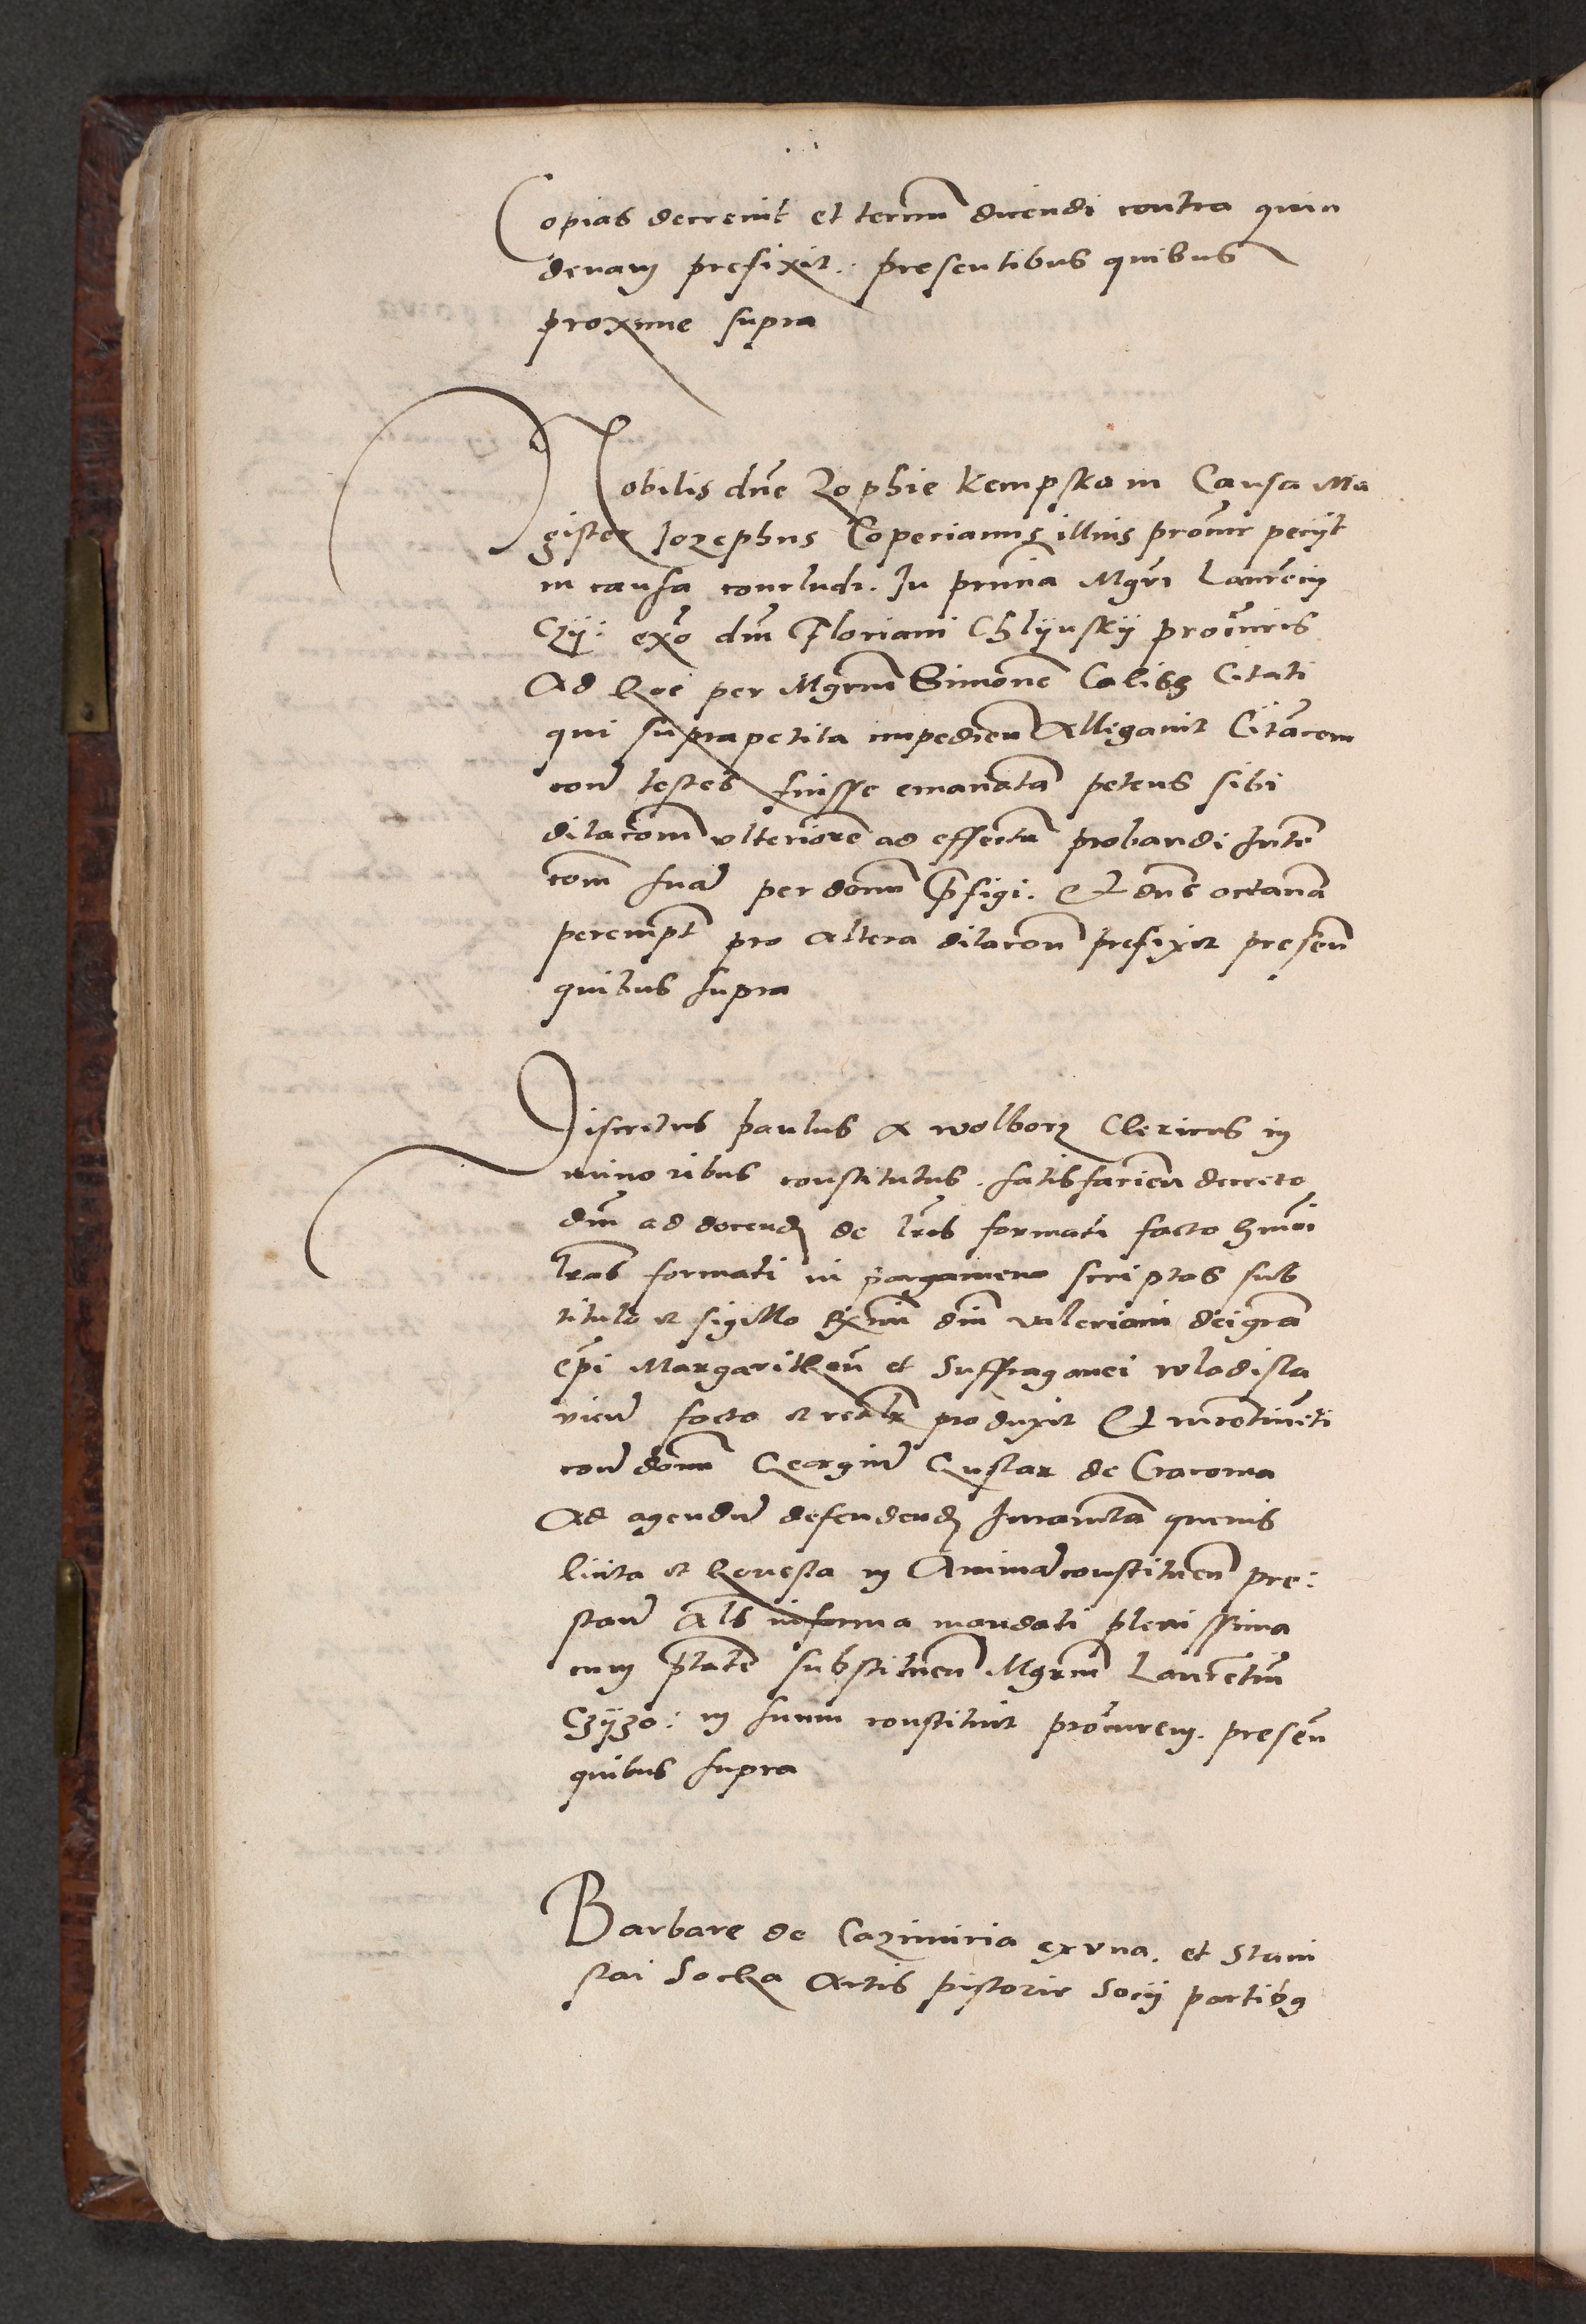 Copias decrevit et termn dicendi contra quin
denam prefixit. presentibus quibus
proxime supra
Nobilis dne Zophie Kempska in Causa Ma
gister Jozephus Coperianus illius procur peciit
in causa concludi. In pnncia Mgri Laurecij
Czij: exo dni Floriani Chlijnskij procuris
Ad hoc per Mgrum Simone Calisz Citati
qui supra petita impedien Allegavit Citacem
con testes fuisse emanata petens sibi
dilacom ulteriore ad effectu probandi Inte
com sua per donu pfigi. Et dns octava
perempt pro altera dilacon prefixit presen
quibus supra
Discretus paulus a wolborz Clericus in
minoribus constitutus. satisfacien decreto
dni ad docend de lris formati facto hmoi
lras formati in pargameno scriptas sub
titulo et sigillo Rxmi dni valeriani dei gra
epi Margariten et Suffraganei wladisla
vien facto et realr produxit Et incontineti
con donu Georgiu Guslar de Cracowa
Ad agendu defendend Juramta quevis
licita et honesta in Anima constituen pre:
stan Als in forma mandati plenissima
cum ptate substituen Mgrum Laurentiu
Czijzo: in suum constituit procurem. presen
quibus supra
Barbare de Cazimiria ex una. et Stani
slai Socha Artis pistorie Socij partibq